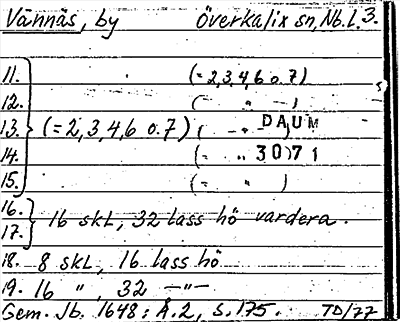 Vännäs, by Överkalix sn, Nb.l. 3.
11. (= 2,3,4,6 o. 7)
12. (— „ —)
13. (= 2, 3, 4, 6 o. 7) (— „ —) DAUM
14. (= „ 3071
15. (= „ )
16. 16 skl, 32 lass hö vardera.
17.
18. 8 skl, 16 lass hö
19. 16 „ , 32 —„—
Gem. Jb. 1648: Å.2, s. 175. TD/77